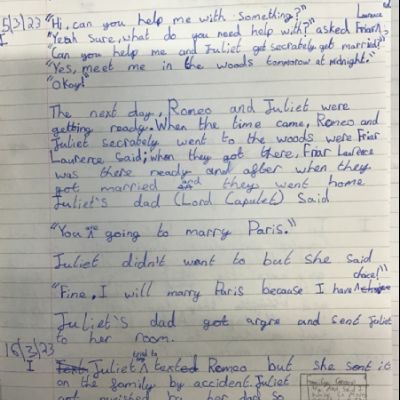 5/3/23 "Hi, can you help me with something?"
I "Yeah sure, what do you need help with?" asked Friar Laurence
"Can you help me and Juliet get secrately get married?"
"Yes, meet me in the woods tomorrow at midnight."
"Okay."
The next day, Romeo and Juliet were
getting ready. When the time came, Romeo and
Juliet secrately went to the woods were Friar
Laurence Said; when they got there, Friar Laurence
was there ready and after when they
got married and they went home
Juliet's dad (Lord Capulet) Said
"You are going to marry Paris."
Juliet didn't want to but she said
"Fine, I will marry Paris because I have choice!"
Juliet's dad got argre and sent Juliet
to her room.
16/3/23
I Juliet tried to texted Romeo but she sent it
on the family by accident. Juliet
got punished by her dad so